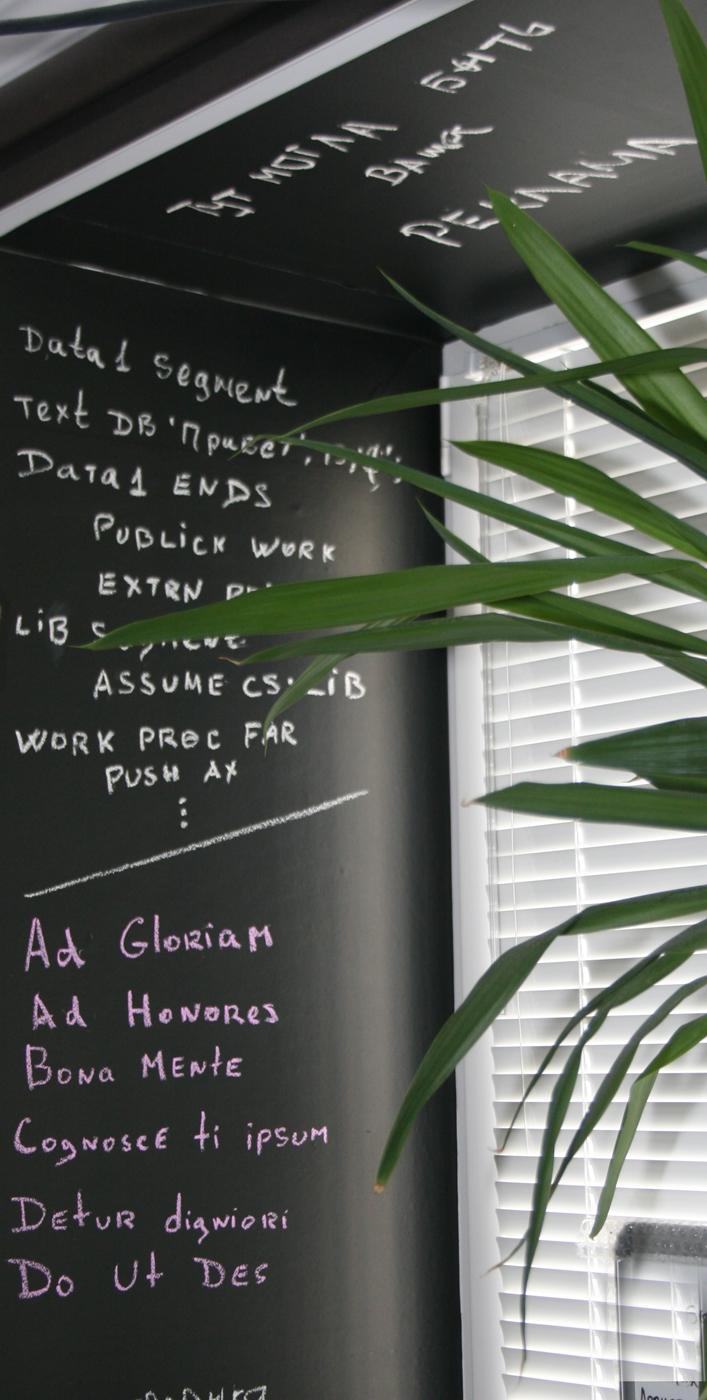 ТУТ МОГЛА БЫТЬ
ВАША
РЕКЛАМА
Data1 segment
Text DB 'Привет', 13,
Data1 ENDS
PUBLICK WORK
EXTRN
LiB Segment
ASSUME CS:LiB
WORK PROC FAR
PUSH AX
⋮
Ad GloRiaM
Ad HoNORes
BoNa MENtE
CogNOSCE ti ipsuM
DEtuR digNiORi
Do Ut DES